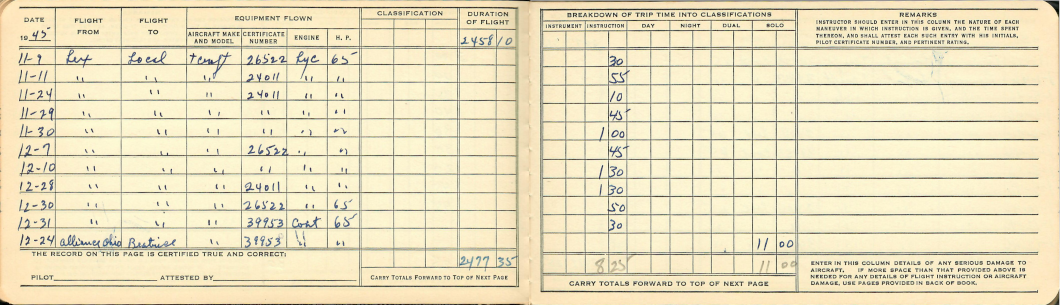 DATE FLIGHT FROM FLIGHT TO EQUIPMENT FLOWN CLASSIFICATION DURATION OF FLIGHT
1945 AIRCRAFT MAKE AND MODEL CERTIFICATE NUMBER ENGINE H. P. 2458 10
11-9 Lex Local Tcraft 26522 Lyc 65
11-11 " " " 24011 " "
11-24 " " " 24011 " "
11-29 " " " " " "
11-30 " " " " " "
12-7 " " " 26522 " "
12-10 " " " " " "
12-28 " " " 24011 " "
12-30 " " " 26522 " 65
12-31 " " " 39953 Cont 65
12-24 Alliance Ohio Beatrice " 39953 " "
THE RECORD ON THIS PAGE IS CERTIFIED TRUE AND CORRECT: 2477 35
PILOT ATTESTED BY CARRY TOTALS FORWARD TO TOP OF NEXT PAGE
BREAKDOWN OF TRIP TIME INTO CLASSIFICATIONS
INSTRUMENT INSTRUCTION DAY NIGHT DUAL SOLO
30
55
10
45
1 00
45
1 30
1 30
50
30
11 00
8 25 11 00
CARRY TOTALS FORWARD TO TOP OF NEXT PAGE
REMARKS
INSTRUCTOR SHOULD ENTER IN THIS COLUMN THE NATURE OF EACH
MANEUVER IN WHICH INSTRUCTION IS GIVEN, AND THE TIME SPENT
THEREON, AND SHALL ATTEST EACH SUCH ENTRY WITH HIS INITIALS,
PILOT CERTIFICATE NUMBER, AND PERTINENT RATING.
ENTER IN THIS COLUMN DETAILS OF ANY SERIOUS DAMAGE TO
AIRCRAFT. IF MORE SPACE THAN THAT PROVIDED ABOVE IS
NEEDED FOR ANY DETAILS OF FLIGHT INSTRUCTION OR AIRCRAFT
DAMAGE, USE PAGES PROVIDED IN BACK OF BOOK.